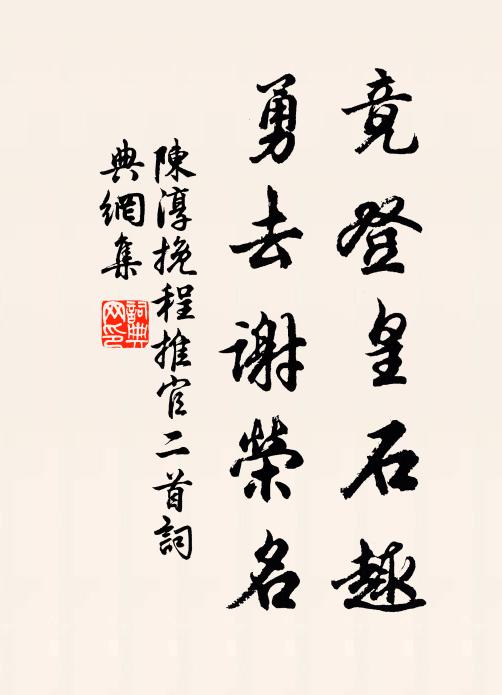 竟登皇石趣
勇去謝榮名
陳淳挽程推官二首詞
典網集
詞典
网印